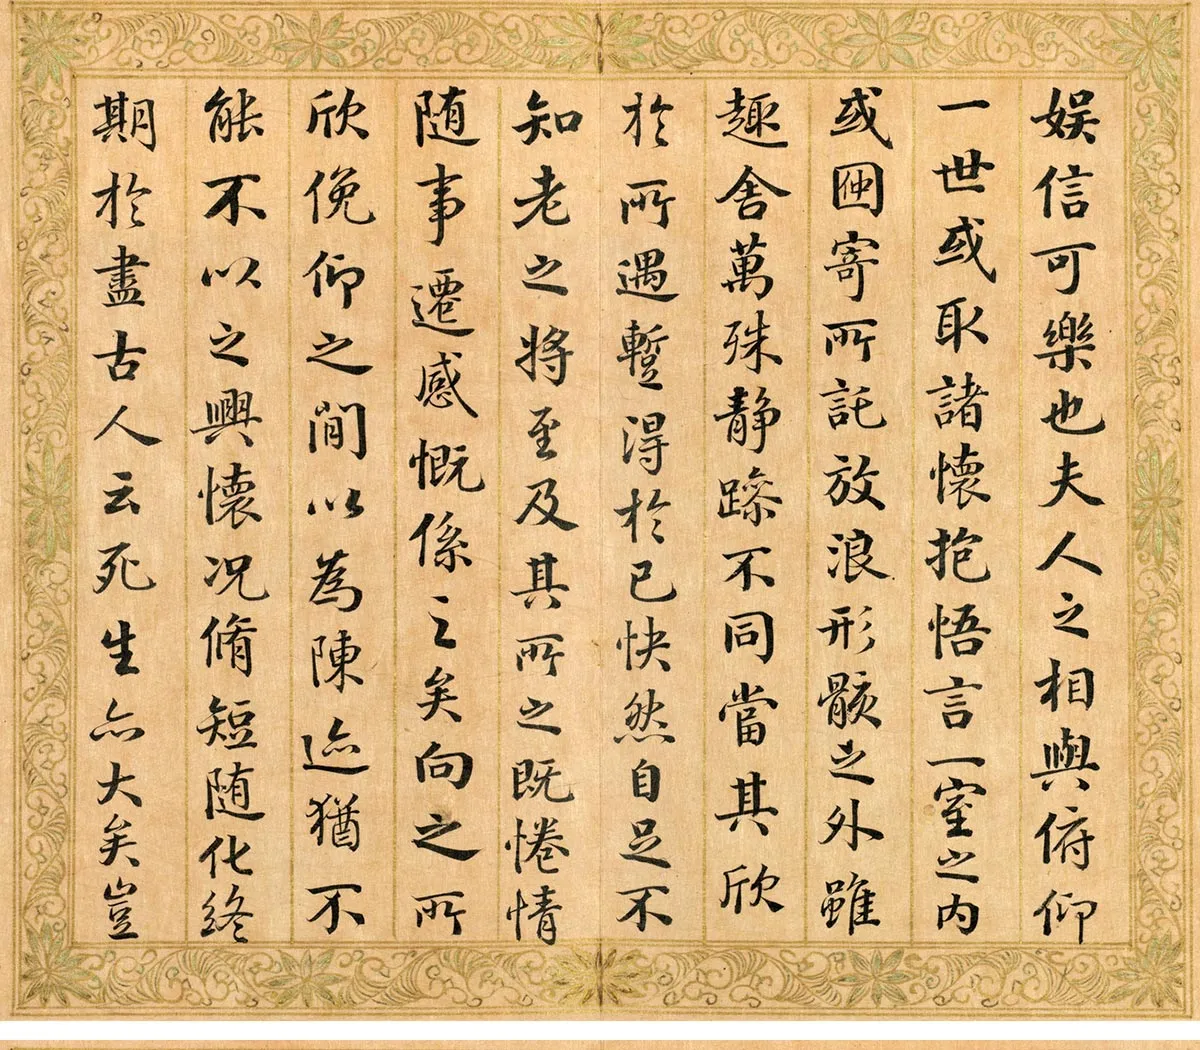 娛信可樂也夫人之相與俯仰
一世或取諸懷抱悟言一室之内
或囙寄所託放浪形骸之外雖
趣舍萬殊静躁不同當其欣
於所遇蹔得於己快然自足不
知老之将至及其所之既惓情
随事遷感慨係之矣向之所
欣俛仰之閒以為陳迹猶不
能不以之興懷况脩短随化終
期於盡古人云死生亦大矣豈